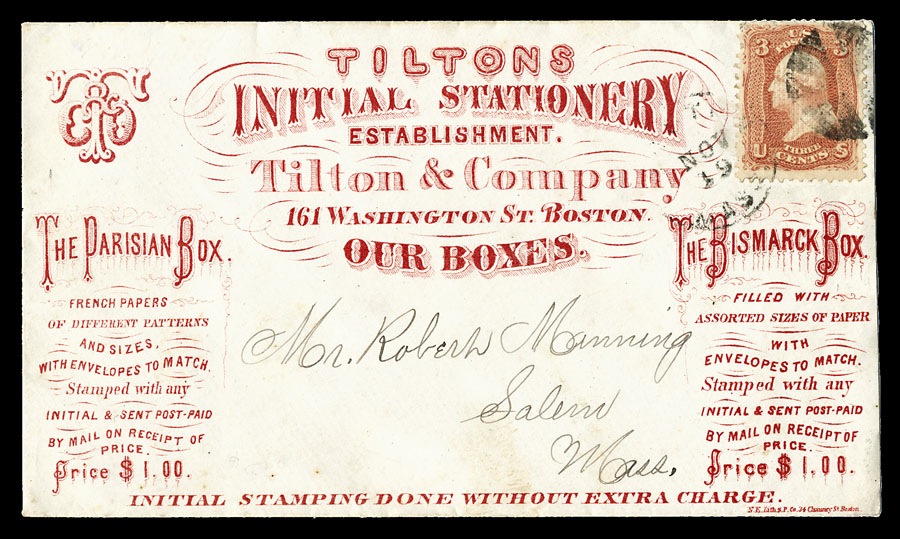 TILTONS
INITIAL STATIONERY
ESTABLISHMENT.
Tilton & Company
161 WASHINGTON ST. BOSTON.
OUR BOXES.
U.S. POSTAGE
3 3
U THREE CENTS S
NOV
19
MASS
THE PARISIAN BOX.
FRENCH PAPERS
OF DIFFERENT PATTERNS
AND SIZES,
WITH ENVELOPES TO MATCH.
Stamped with any
INITIAL & SENT POST-PAID
BY MAIL ON RECEIPT OF
PRICE.
Price $1.00.
THE BISMARCK BOX.
FILLED WITH
ASSORTED SIZES OF PAPER
WITH
ENVELOPES TO MATCH.
Stamped with any
INITIAL & SENT POST-PAID
BY MAIL ON RECEIPT OF
PRICE.
Price $1.00.
Mr. Robert Manning
Salem
Mass.
INITIAL STAMPING DONE WITHOUT EXTRA CHARGE.
N.E. Lith. S.P. Co. 24 Chauncy St. Boston